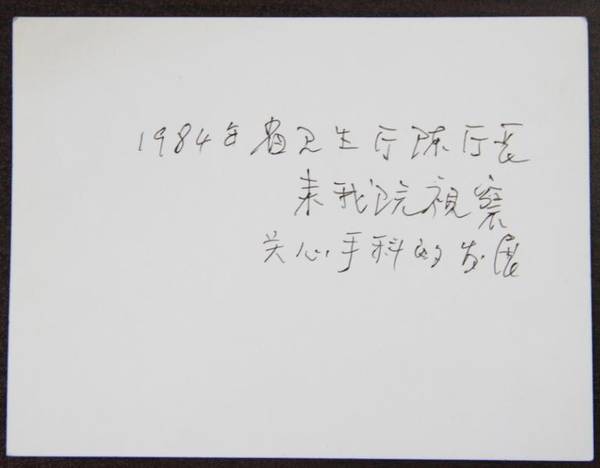 1984年省卫生厅陈厅长
来我院視察
关心手科的发展